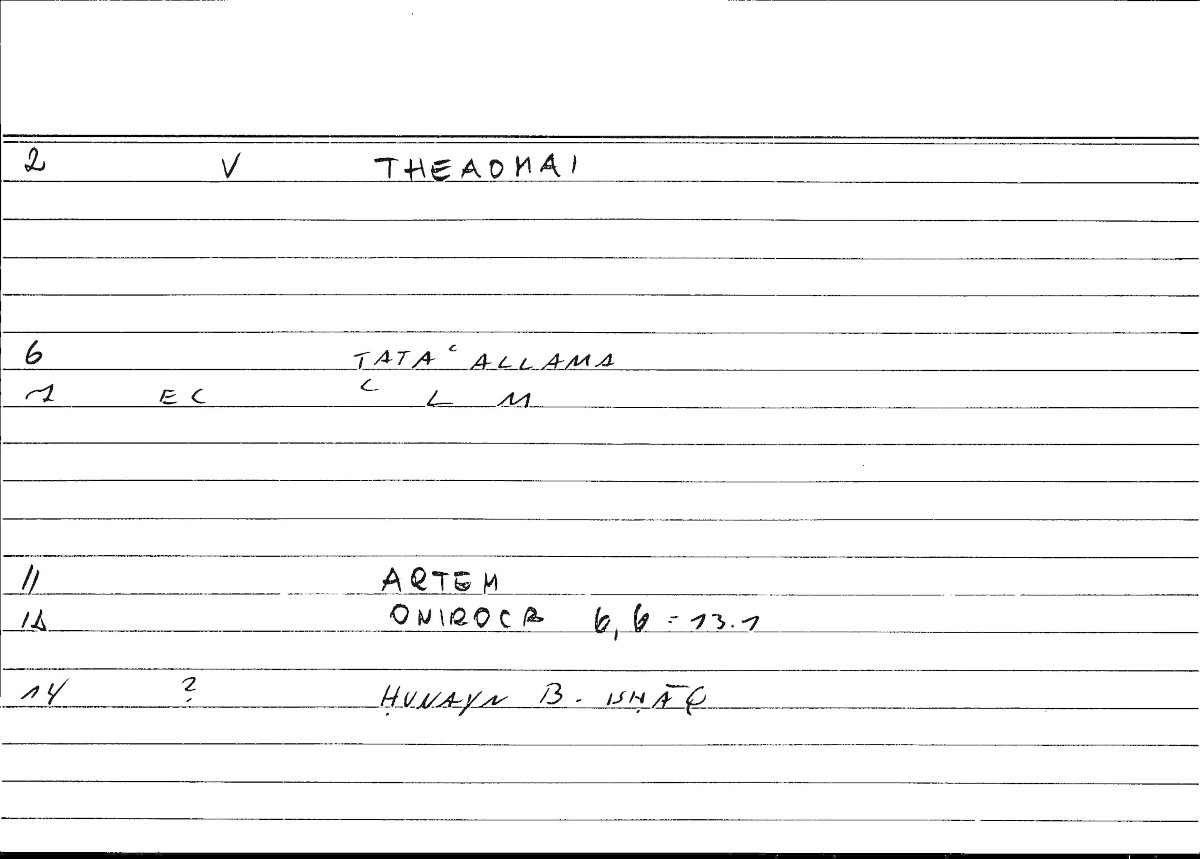 2 V THEAOMAI
6 TATAʿALLAMA
7 EC ʿ L M
11 ARTEM
12 ONIROCR 6,6 = 13.1
14 ? ḤUNAYN B. ISḤĀQ